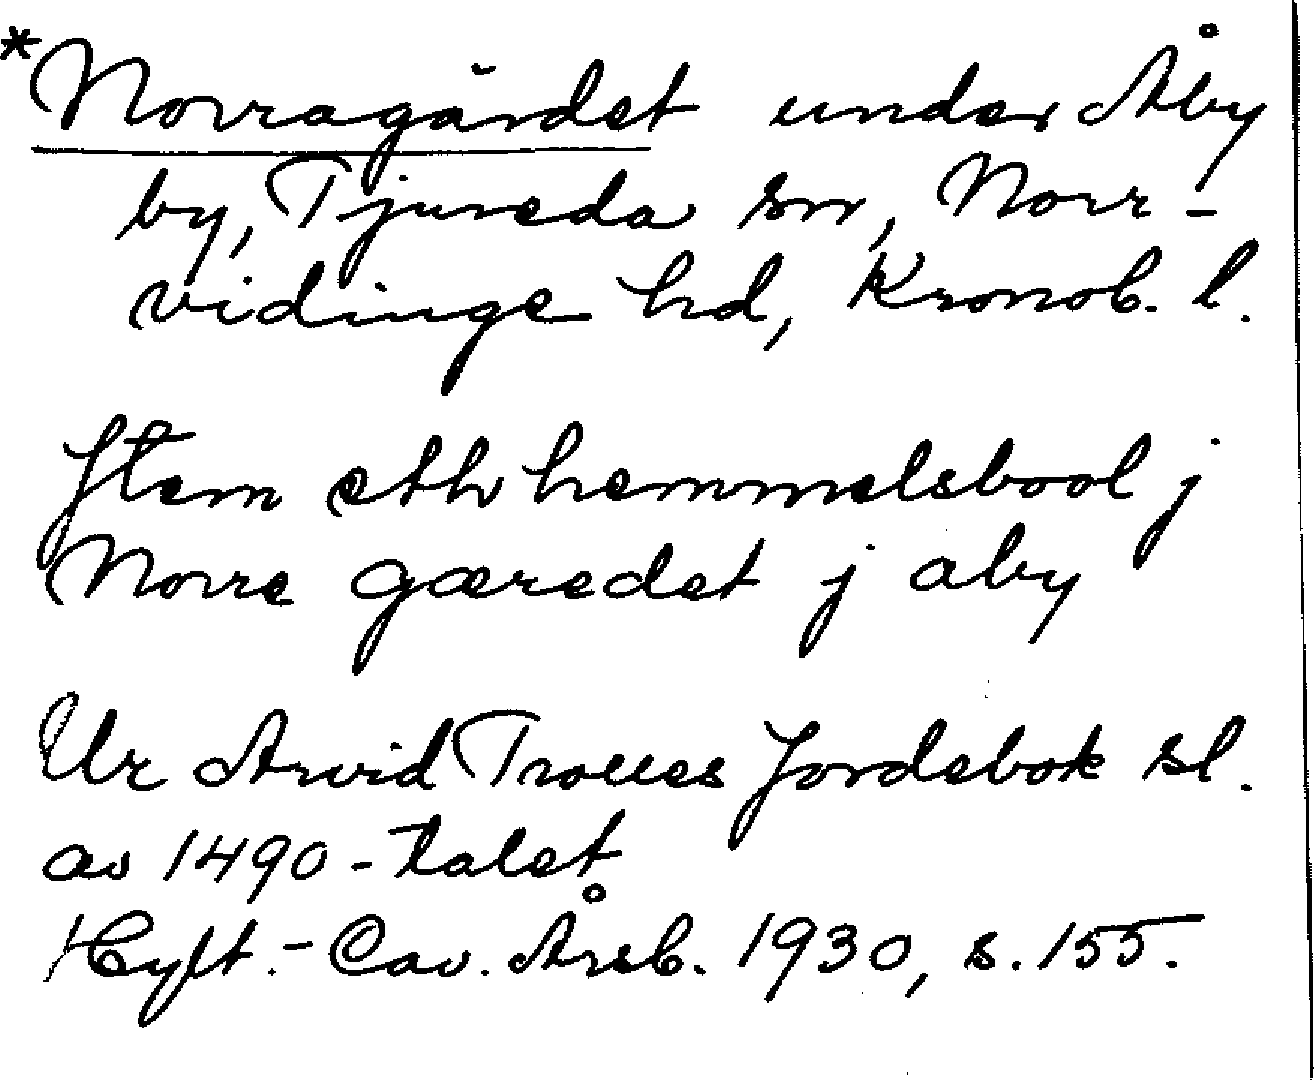 *Norragärdet under Åby
by, Tjureda sn, Norr-
vidinge hd, Kronob. l.
Jtem eth hemmelsbool j
Norre gæredet j aby
Ur Arvid Trolles Jordebok sl.
av 1490-talet
Hylt.-Cav. Årsb. 1930, s. 155.